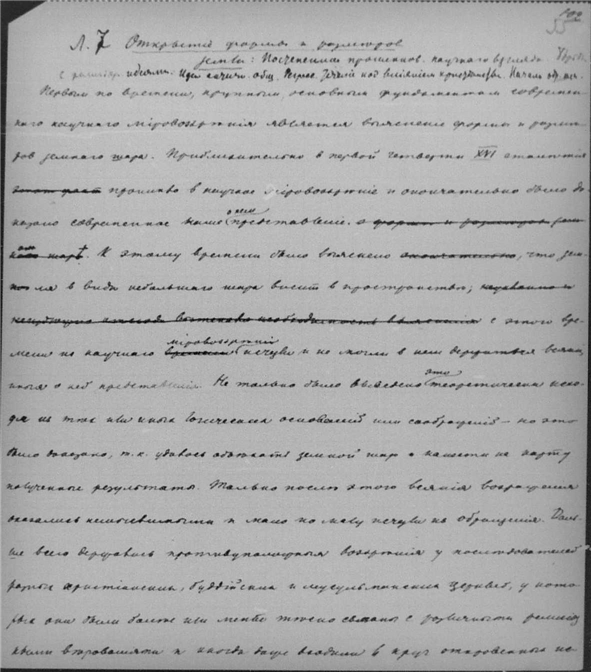 Л. 7 Открытие формы и размеров
земли: Постепенный проникнов. научного взгляда.
с разным. идеями. Идеи антич. общ.
Первым по времени, крупным, основным фундаментом современ-
наго научнаго міровоззрѣнія является выясненіе формы и разме-
ров земного шара. Приблизительно в первой четверти XVI столѣтія
этот факт проникло в научное міровоззрѣніе и окончательно было до-
казано современное наше о нем представленіе. о формѣ и размѣрах зем
наго шара. К этому времени было выяснено окончательно, что зем-
ля в видѣ небольшого шара висит в пространствѣ; с этого вре-
мени из научнаго міровоззрѣнія исчезли и не могли в нем держаться всякія
иныя о ней представленія. Не только было выведено это теоретически исхо-
дя из тѣх или иных логических основаній или соображеній – но это
было доказано, т. к. удалось объѣхать земной шар и нанести на карту
полученные результаты. Только послѣ этого всякія возраженія
оказались немыслимыми и мало по малу исчезли из обращенія. Доль-
ше всего держались противуположныя воззрѣнія у послѣдователей
разных христіанских, буддійских и мусульманских церквей, у кото-
рых они были болѣе или менѣе тѣсно связаны с различными религіоз
ными вѣрованіями и иногда даже входили в круг откровенных ис-